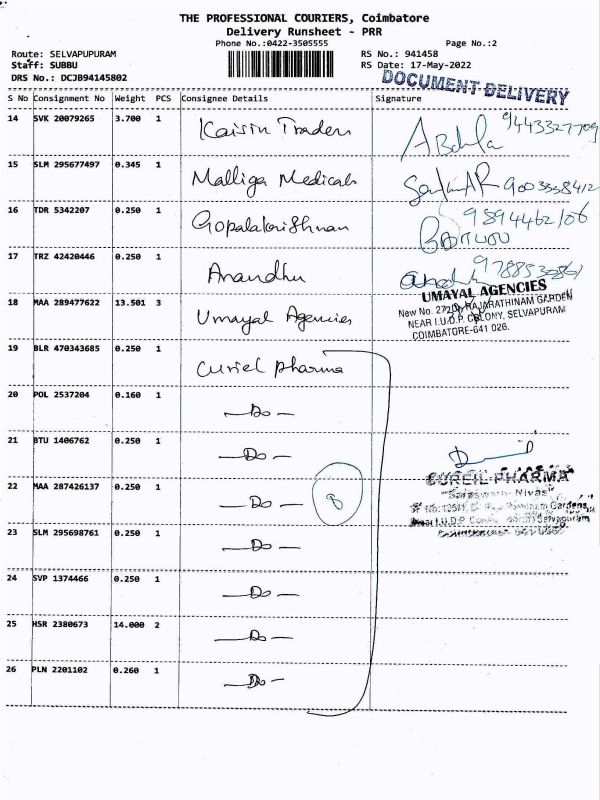 THE PROFESSIONAL COURIERS, Coimbatore
Delivery Runsheet - PRR
Phone No.:0422-3505555 Page No.:2
Route: SELVAPUPURAM RS No.: 941458
Staff: SUBBU RS Date: 17-May-2022
DRS No.: DCJB94145802
DOCUMENT DELIVERY
S No Consignment No Weight PCS Consignee Details Signature
14 SVK 20079265 3.700 1 Kaisin Traders 9443327709
15 SLM 295677497 0.345 1 Malliga Medicals
16 TDR 5342207 0.250 1 Gopalakrishnan
17 TRZ 42420446 0.250 1 Anandhu
18 MAA 289477622 13.501 3 Umayal Agencies
UMAYAL AGENCIES
RAJARATHINAM GARDEN
NEAR I.U.D.P. COLONY, SELVAPURAM
COIMBATORE-641 026.
19 BLR 470343685 0.250 1 Curiel Pharma
20 POL 2537204 0.160 1 - Do -
21 BTU 1406762 0.250 1 - Do -
22 MAA 287426137 0.250 1 - Do - 8
CUREIL PHARMA
23 SLM 295698761 0.250 1 - Do -
24 SVP 1374466 0.250 1 - Do -
25 HSR 2380673 14.000 2 - Do -
26 PLN 2201102 0.260 1 - Do -